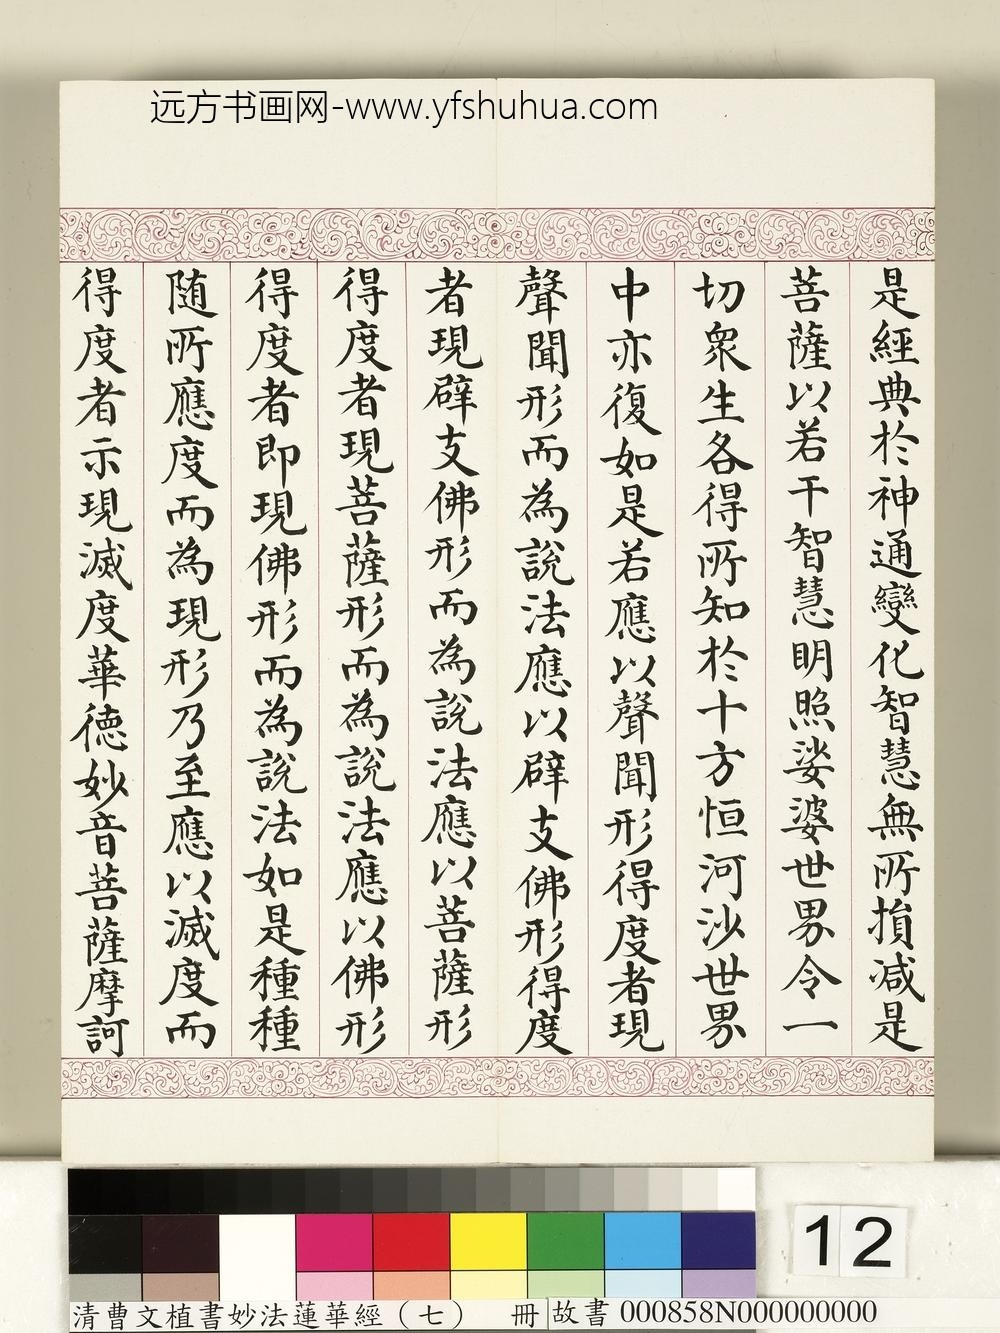 远方书画网-www.yfshuhua.com
是經典於神通變化智慧無所損减是
菩薩以若干智慧明照娑婆世界令一
切衆生各得所知於十方恒河沙世界
中亦復如是若應以聲聞形得度者現
聲聞形而為說法應以辟支佛形得度
者現辟支佛形而為說法應以菩薩形
得度者現菩薩形而為說法應以佛形
得度者即現佛形而為說法如是種種
随所應度而為現形乃至應以滅度而
得度者示現滅度華德妙音菩薩摩訶
12
清曹文植書妙法蓮華經（七） 冊 故書 000858N000000000